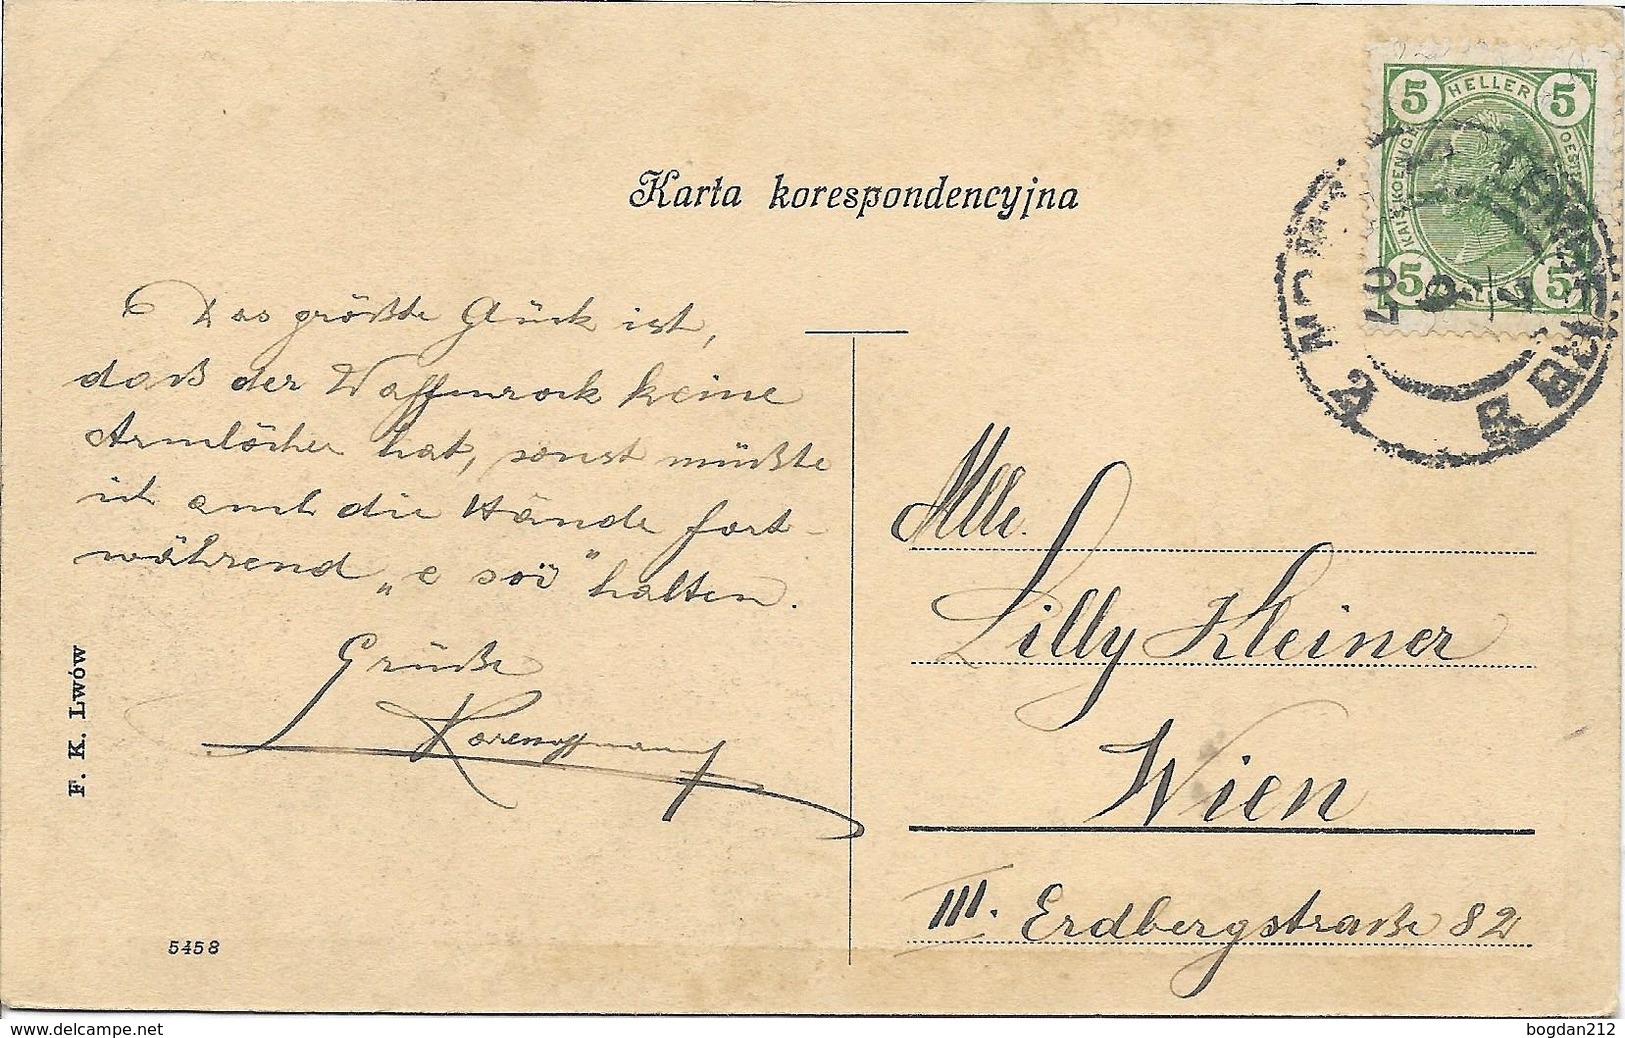 Karta korespondencyjna
5 HELLER 5
KAIS. KOENIGL.
5 HELLER 5
07
Das größte Glück ist,
daß der Waffenrock keine
Armlöcher hat, sonst müßte
ich auch die Hände fort-
während „e soi“ halten.
Grüße
Mlle.
Lilly Kleiner
Wien
III. Erdbergstraße 82
F. K. Lwów
5458
www.delcampe.net
bogdan212